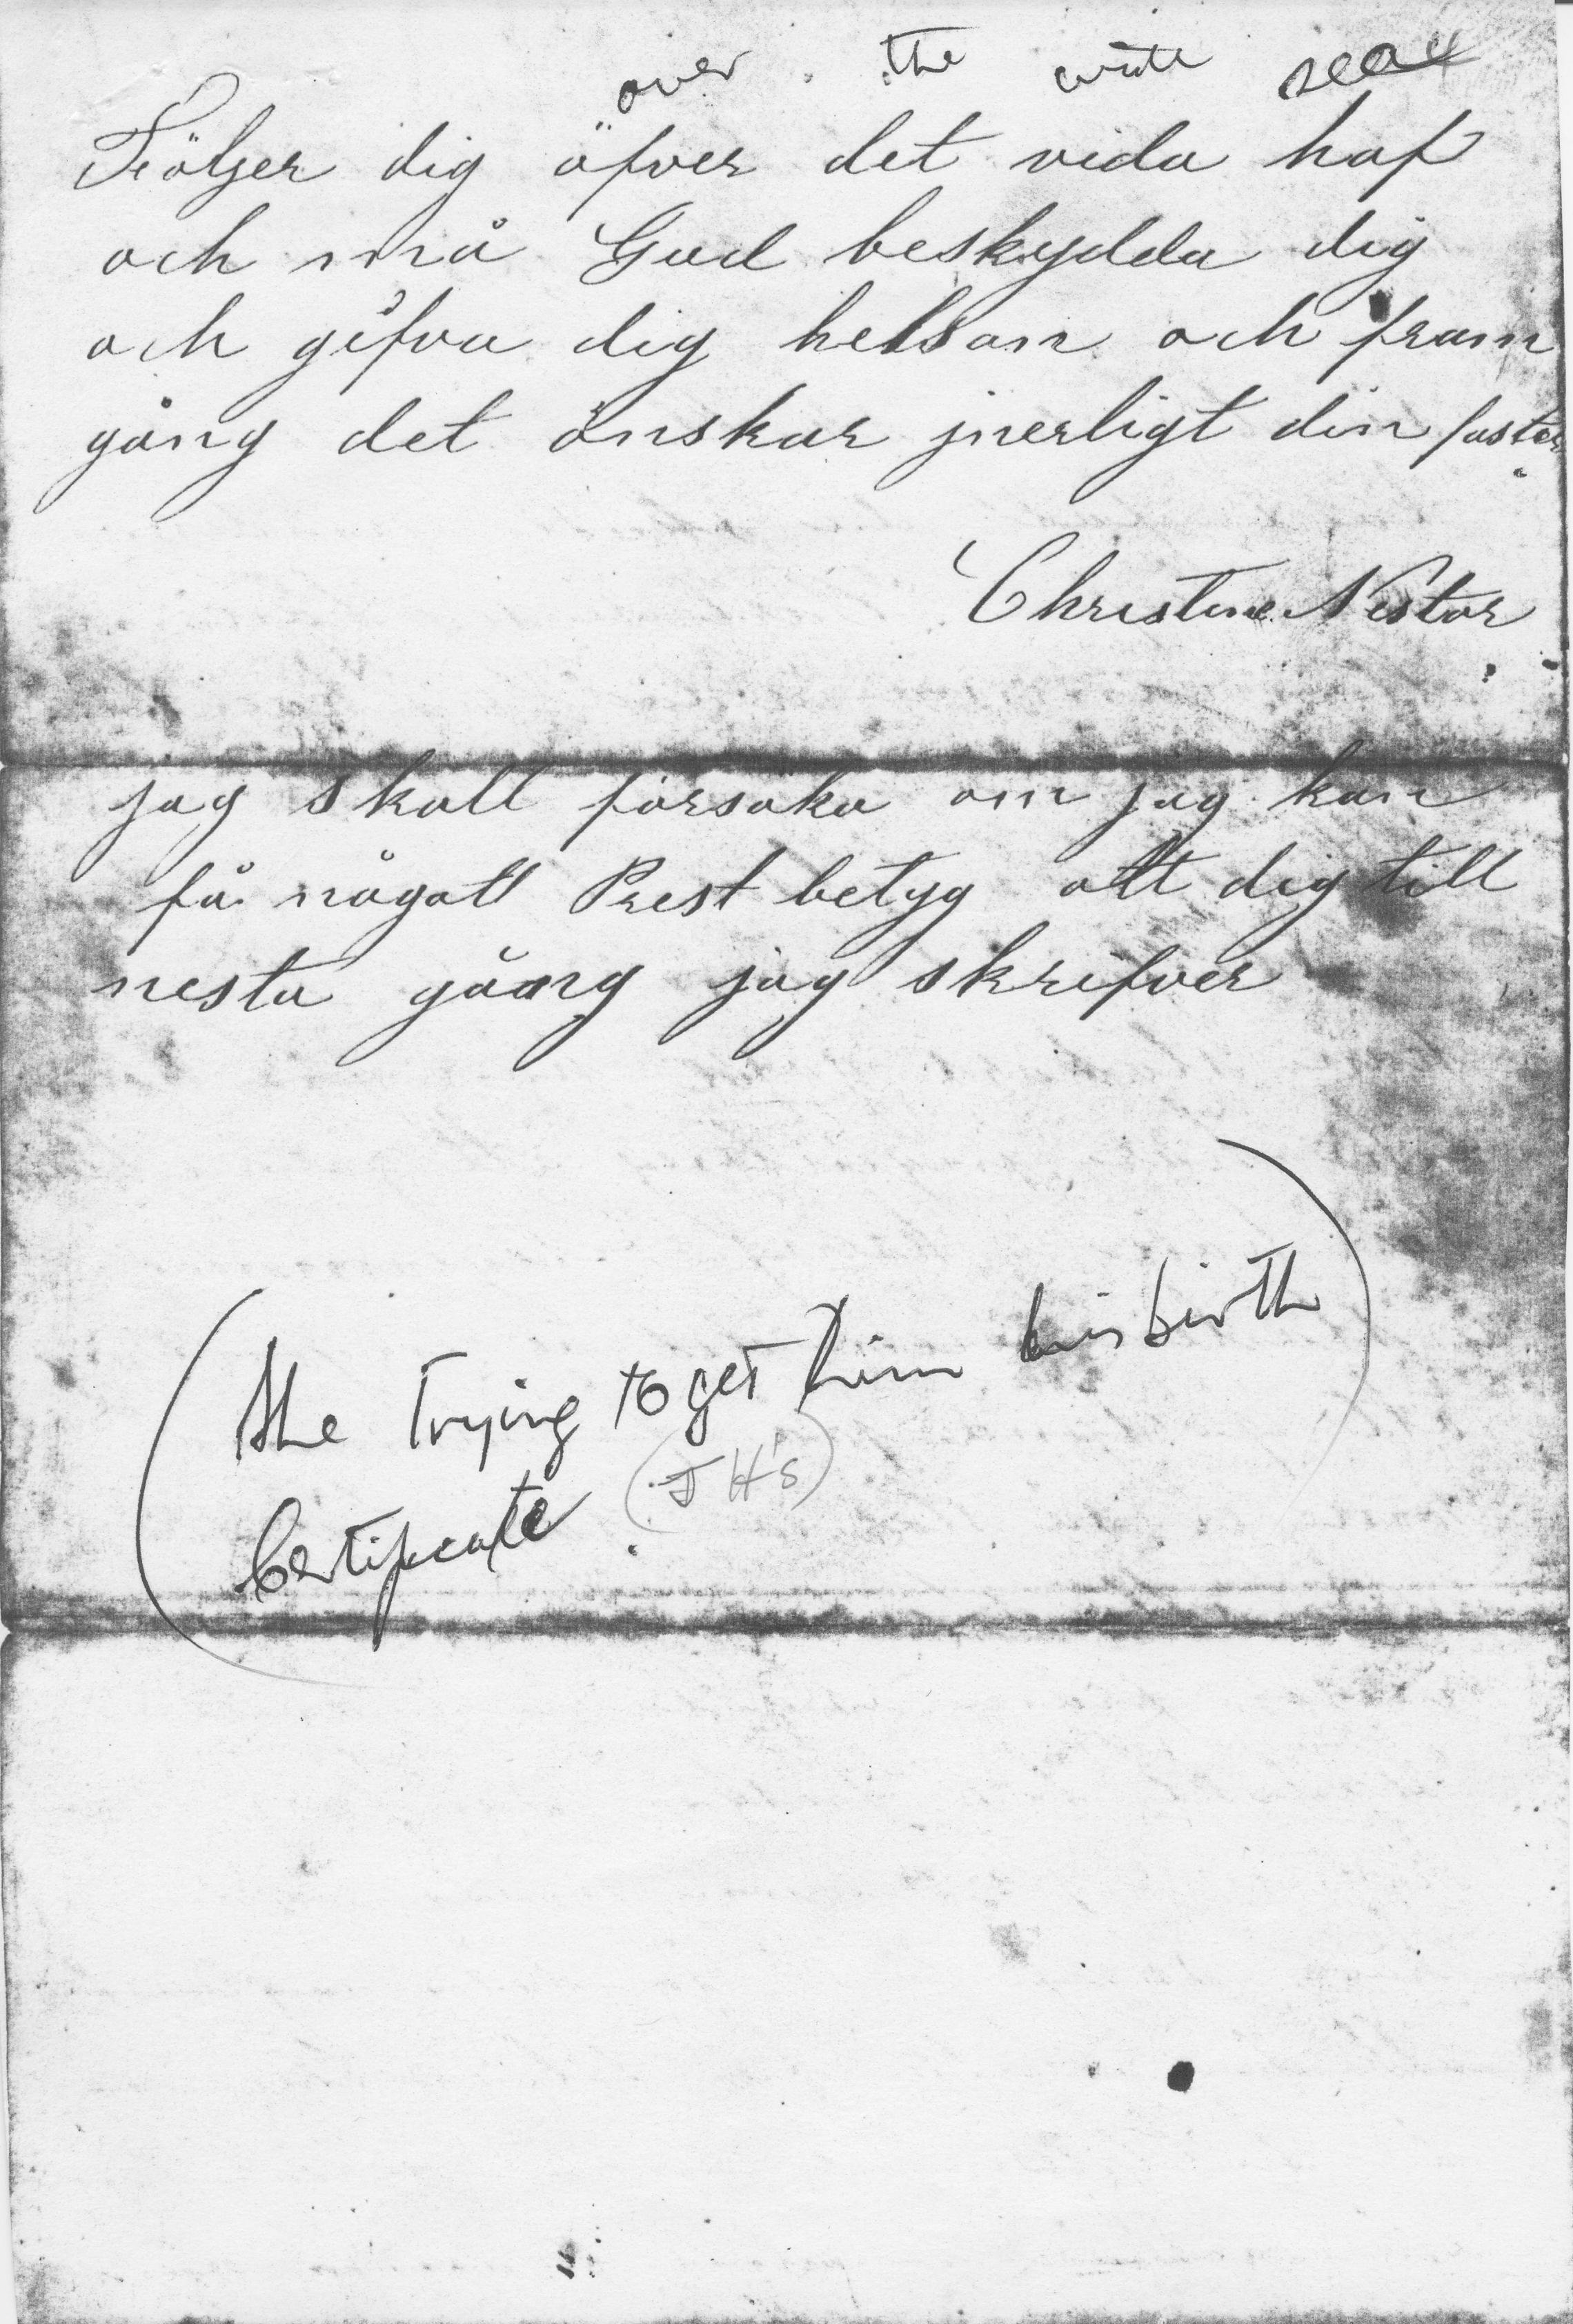 over the wide sea
Följer dig öfver det vida haf
och må Gud beskydda dig
och gifva dig helsan och fram
gång det önskar jnerligt din faster
Christine Nestor
jag skall försöka om jag kan
få någott Prest betyg att dig till
nesta gång jag skrifver
(she Trying to get him his birth
Certificate (JH's)